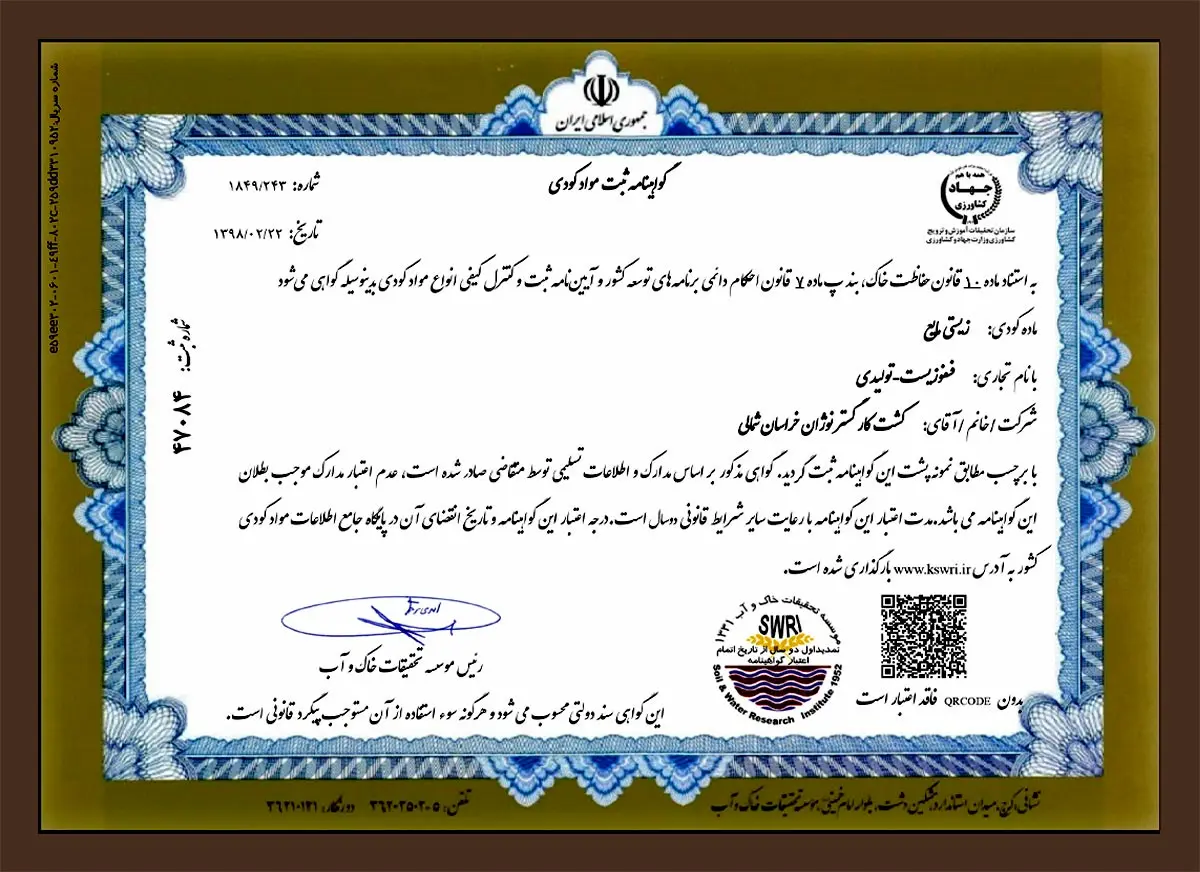 شماره سریال:
جمهوری اسلامی ایران
همه با هم
جهاد
کشاورزی
سازمان تحقیقات آموزش و ترویج
کشاورزی وزارت جهاد کشاورزی
گواهینامه ثبت مواد کودی
شماره: ۱۸۴۹/۲۴۳
تاریخ: ۱۳۹۸/۰۲/۲۲
به استناد ماده ۱۰ قانون حفاظت خاک، بند پ ماده ۷ قانون احکام دائمی برنامه های توسعه کشور و آیین نامه ثبت و کنترل کیفی انواع مواد کودی بدینوسیله گواهی می شود
ماده کودی: زیستی مایع
با نام تجاری: فسفوزیست-تولیدی
شرکت / خانم / آقای: کشت کار گستر نوژان خراسان شمالی
شماره ثبت: ۴۷۰۸۴
با برچسب مطابق نمونه پشت این گواهینامه ثبت گردید. گواهی مذکور بر اساس مدارک و اطلاعات تسلیمی توسط متقاضی صادر شده است، عدم اعتبار مدارک موجب بطلان
این گواهینامه می باشد. مدت اعتبار این گواهینامه با رعایت سایر شرایط قانونی دوسال است. درجه اعتبار این گواهینامه و تاریخ انقضای آن در پایگاه جامع اطلاعات مواد کودی
کشور به آدرس www.kswri.ir بارگذاری شده است.
موسسه تحقیقات خاک و آب ۱۳۳۱
SWRI
تمدید اول دو سال از تاریخ اتمام
اعتبار گواهینامه
Soil & Water Research Institute 1952
بدون QRCODE فاقد اعتبار است
رئیس موسسه تحقیقات خاک و آب
این گواهی سند دولتی محسوب می شود و هرگونه سوء استفاده از آن مستوجب پیگرد قانونی است.
نشانی: کرج، میدان استاندارد، مشکین دشت، بلوار امام خمینی، موسسه تحقیقات خاک و آب
تلفن: ۵-۳۶۲۰۲۵۰۲ دورنگار: ۳۶۲۱۰۱۲۱